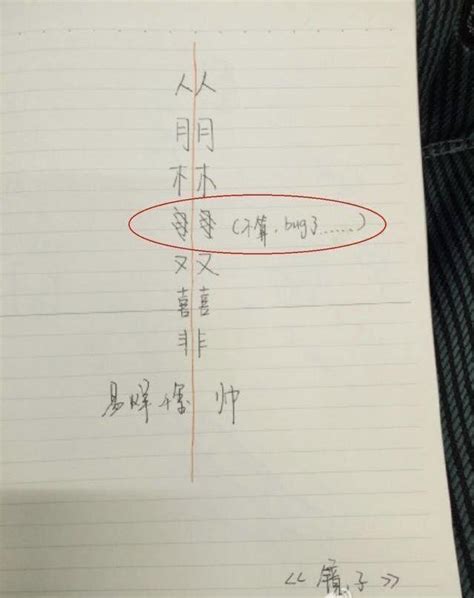 人人
月月
木木
(不算，bug了......)
又又
喜喜
非
易烊千玺 帅
《镜子》